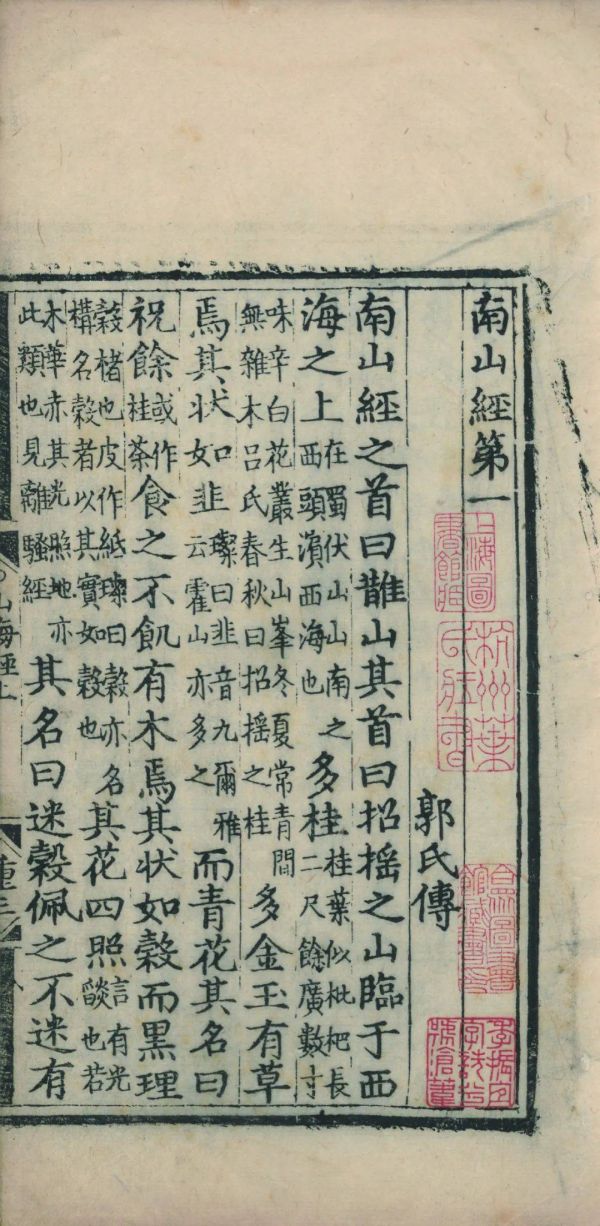 南山經第一
上海圖書館藏
杭州葉氏藏書
郭氏傳
合眾圖書館藏書印
季振宜字詵兮號滄葦
南山經之首曰䧿山其首曰招摇之山臨于西
海之上在蜀伏山山南之西頭濱西海也多桂桂葉似枇杷長二尺餘廣數寸
味辛白花叢生山峯冬夏常青間無雜木吕氏春秋曰招摇之桂多金玉有草
焉其状如韭璨曰韭音九爾雅云霍山亦多之而青花其名曰
祝餘或作桂荼食之不飢有木焉其状如榖而黒理
榖楮也皮作紙璨曰榖亦名構名榖者以其實如榖也其花四照言有光燄也若
木華赤其光照地亦此類也見離騷經其名曰迷榖佩之不迷有
山海經上